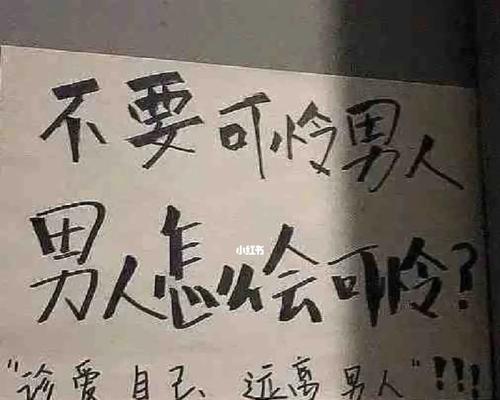 不要可怜男人
小红书
男人怎么会可怜?
"珍爱自己、远离男人"!!!